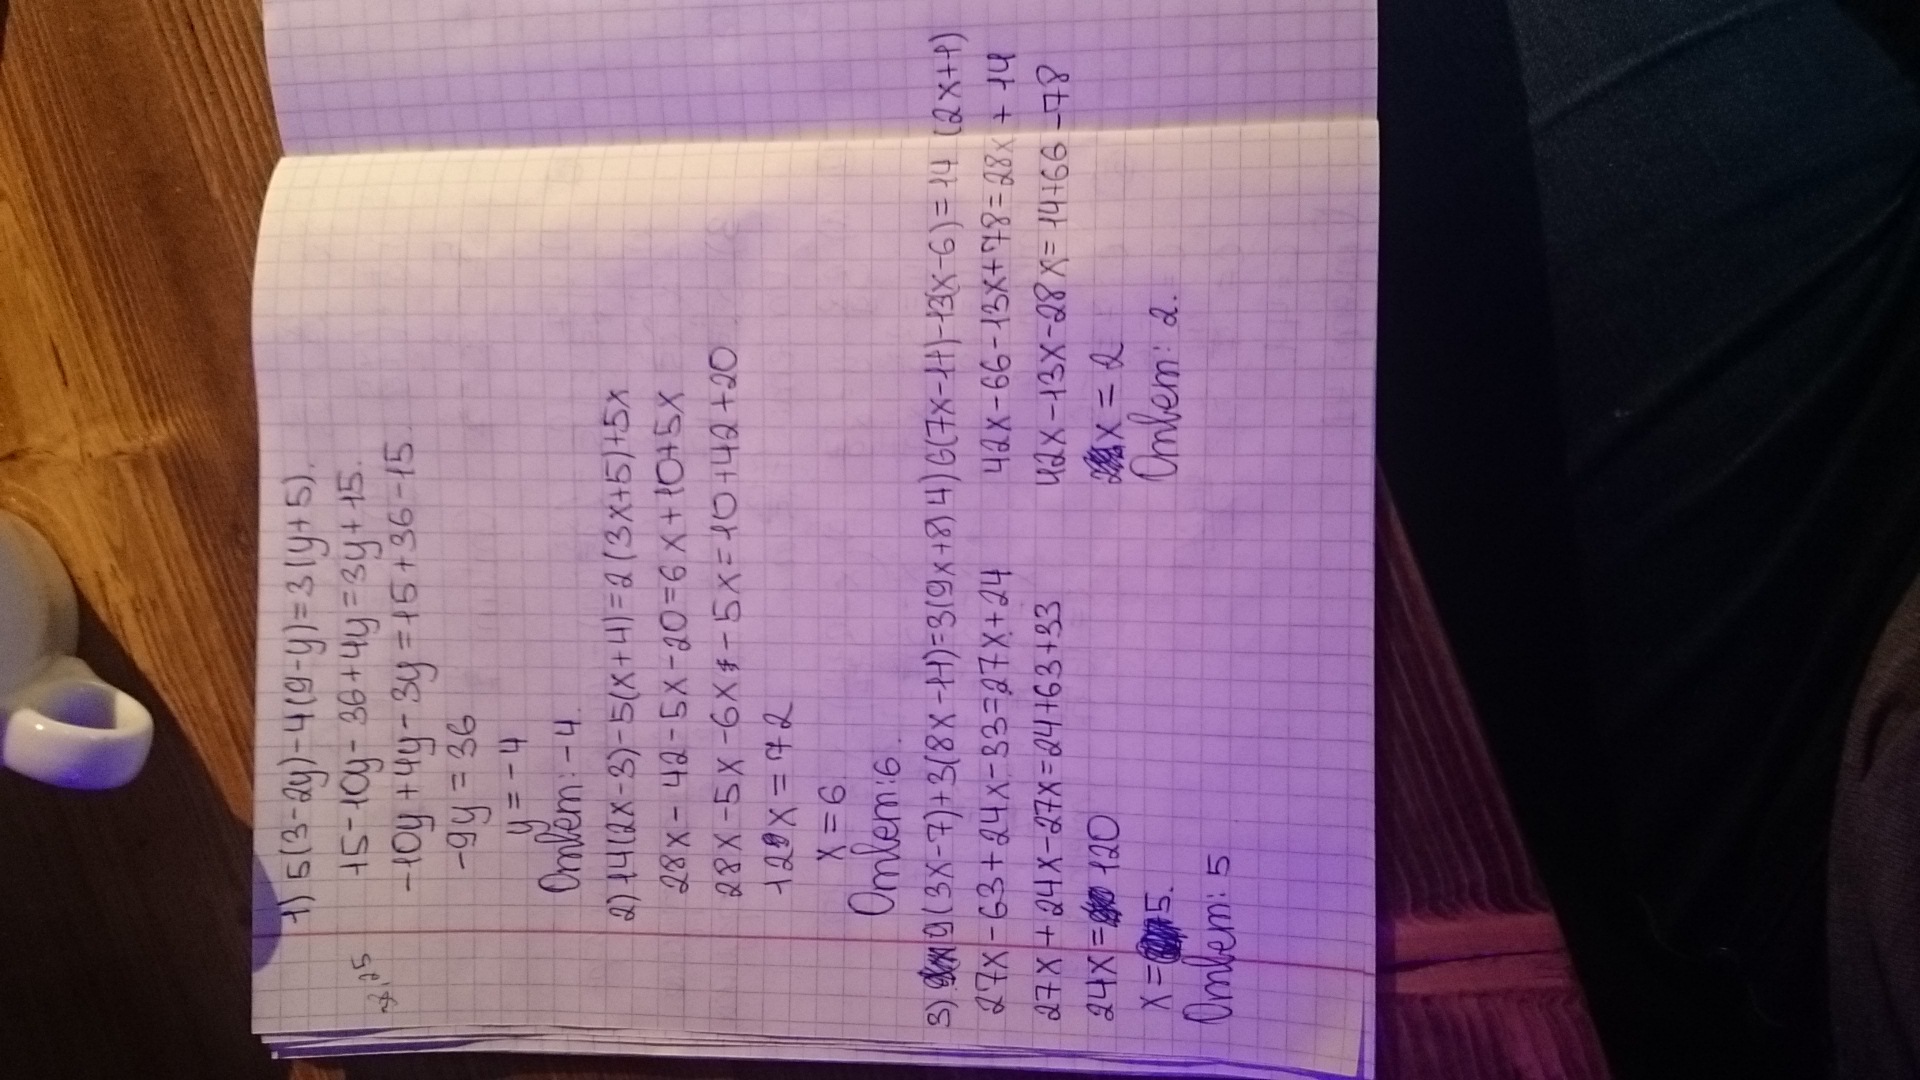 1) 5(3-2y)-4(9-y)=3(y+5).
15-10y-36+4y=3y+15.
-10y+4y-3y=15+36-15.
-9y=36
y=-4
Ответ: -4.
2) 14(2x-3)-5(x+4)=2(3x+5)+5x
28x-42-5x-20=6x+10+5x
28x-5x-6x-5x=10+42+20
12x=72
x=6.
Ответ: 6.
3) 9(3x-7)+3(8x-11)=3(9x+8)
27x-63+24x-33=27x+24
27x+24x-27x=24+63+33
24x=120
x=5.
Ответ: 5
4) 6(7x-11)-13(x-6)=14(2x+1)
42x-66-13x+78=28x+14
42x-13x-28x=14+66-78
x=2
Ответ: 2.